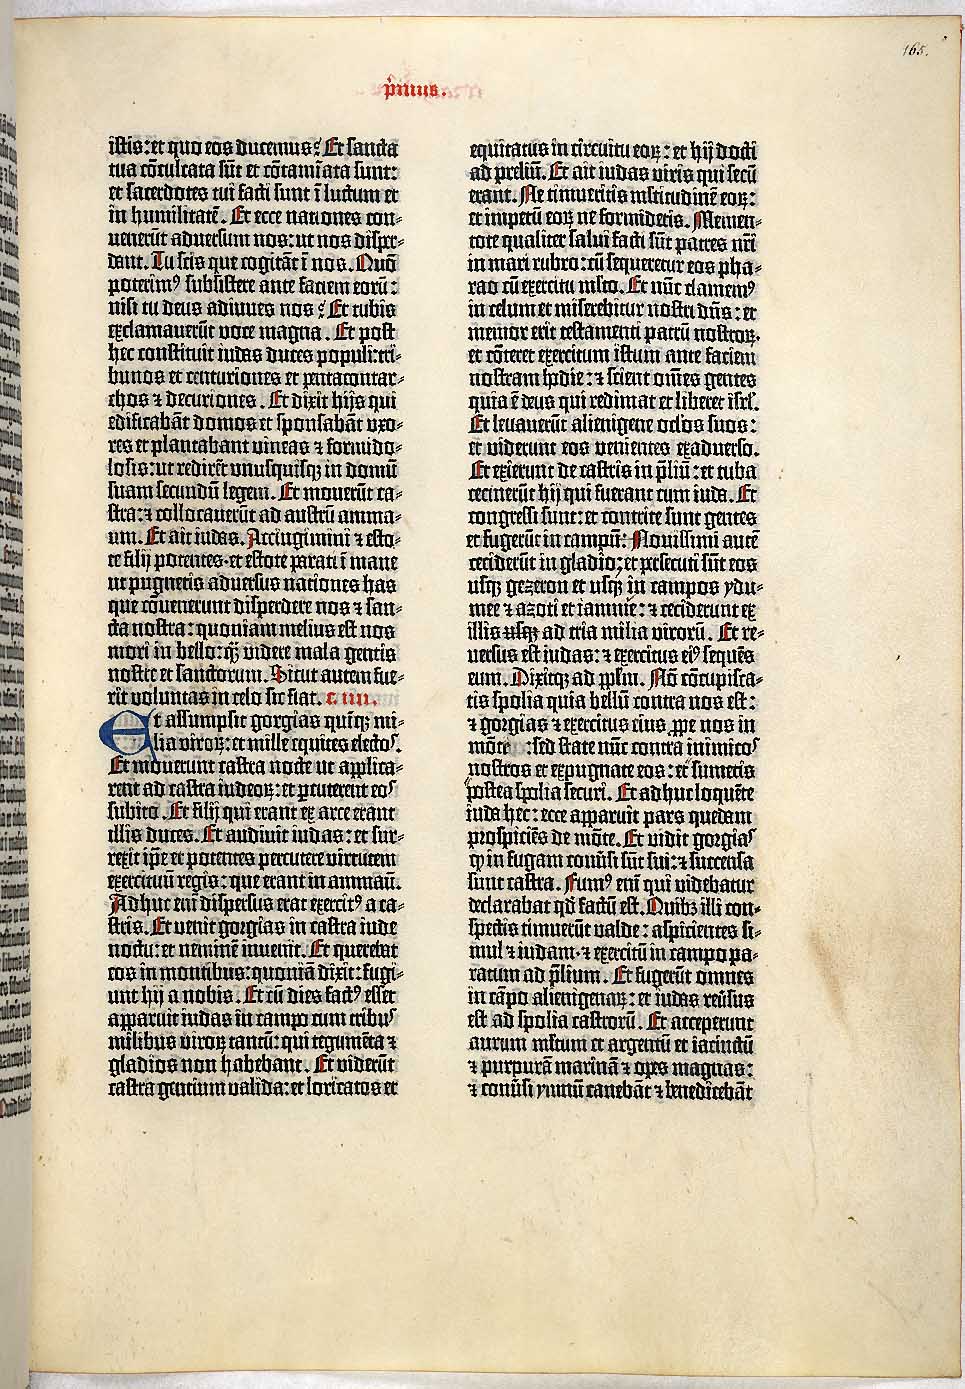 165.
p̄mus.
istis: et quo eos ducemus? Et sancta
tua cōculcata sūt et cōtamīata sunt:
et sacerdotes tui facti sunt ī luctum et
in humilitatē. Et ecce nationes con-
uenerūt aduersum nos: ut nos disper-
dant. Tu scis que cogitāt ī nos. Quō
poterimꝰ subsistere ante faciem eorū:
nisi tu deus adiuues nos? Et tubis
exclamauerūt voce magna. Et post
hec constituit iudas duces populi: tri-
bunos et centuriones et pentacontar-
chos ⁊ decuriones. Et dixit hijs qui
edificabāt domos et sponsabāt vxo-
res et plantabant vineas ⁊ formido-
losis: ut redirēt vnusquisqꝫ in domū
suam secundū legem. Et mouerūt ca-
stra: ⁊ collocauerūt ad austrū amma-
um. Et ait iudas. Accingimini ⁊ esto-
te filij potentes· et estote parati ī mane
ut pugnetis aduersus nationes has
que cōuenerunt disperdere nos ⁊ san-
cta nostra: quoniam melius est nos
mori in bello: q̄ꝫ videre mala gentis
nostre et sanctorum. Sicut autem fue-
rit voluntas in celo sic fiat. c. iiii.
Et assumpsit gorgias quīqꝫ mi-
lia viroꝝ: et mille equites electoˢ.
Et mouerunt castra nocte ut applica-
rent ad castra iudeoꝝ: et ꝑcuterent eoˢ
subito. Et filij qui erant ex arce erant
illis duces. Et audiuit iudas: et sur-
rexit ip̄e et potentes percutere virtutem
exercituū regis: que erant in ammaū.
Adhuc enī dispersus erat exercitꝰ a ca-
stris. Et venit gorgias in castra iude
noctu: et neminē inuenit. Et querebat
eos in montibus: quoniā dixit: fugi-
unt hij a nobis. Et cū dies factꝰ esset
apparuit iudas in campo cum tribuˢ
milibus viroꝝ tantū: qui tegumēta ⁊
gladios non habebant. Et viderūt
castra gentium valida: et loricatos et
equitatus in circuitu eoꝝ: et hij docti
ad preliū. Et ait iudas viris qui secū
erant. Ne timueritis mltitudinē eoꝝ:
et impetū eoꝝ ne formidetis. Memen-
tote qualiter salui facti sūt patres nr̄i
in mari rubro: cū sequeretur eos pha-
rao cū exercitu mlto. Et nūc clamemꝰ
in celum et miserebitur nostri dn̄s: et
memor erit testamenti patrū nostroꝝ·
et cōteret exercitum istum ante faciem
nostram hodie: ⁊ scient om̄es gentes
quia ē deus qui redimat et liberet isrl̄.
Et leuauerūt alienigene oclos suos:
et viderunt eos venientes exaduerso.
Et exierunt de castris in p̄liū: et tuba
cecinerūt hij qui fuerant cum iuda. Et
congressi sunt: et contrite sunt gentes
et fugerūt in campū: Nouissimi autē
ceciderūt in gladio: et ꝑsecuti sūt eos
usqꝫ gezeron et usqꝫ in campos ydu-
mee ⁊ azoti et iamnie: ⁊ ceciderunt ex
illis usqꝫ ad tria milia virorū. Et re-
uersus est iudas: ⁊ exercitus eiꝰ sequēs
eum. Dixitqꝫ ad pplm̄. Nō cōcupisca-
tis spolia quia bellū contra nos est:
⁊ gorgias ⁊ exercitus eius ꝓpe nos in
mōte : sed state nūc contra inimicoˢ
nostros et expugnate eos: et sumetis
postea spolia securi. Et adhuc loquēte
iuda hec: ecce apparuit pars quedam
prospiciēs de mōte. Et vidit gorgiaˢ
ꝙ in fugam conūsi sūt sui: ⁊ succensa
sunt castra. Fumꝰ enī qui videbatur
declarabat qd̄ factū est. Quibꝫ illi con-
spectis timuerūt valde: aspicientes si-
mul ⁊ iudam· ⁊ exercitū in campo pa-
ratum ad p̄lium. Et fugerūt omnes
in cāpo alienigenaꝝ: et iudas reūsus
est ad spolia castrorū. Et acceperunt
aurum mltum et argentū et iacinctū
⁊ purpurā marinā ⁊ opes magnas:
⁊ conūsi ymnū canebāt ⁊ benedicebāt